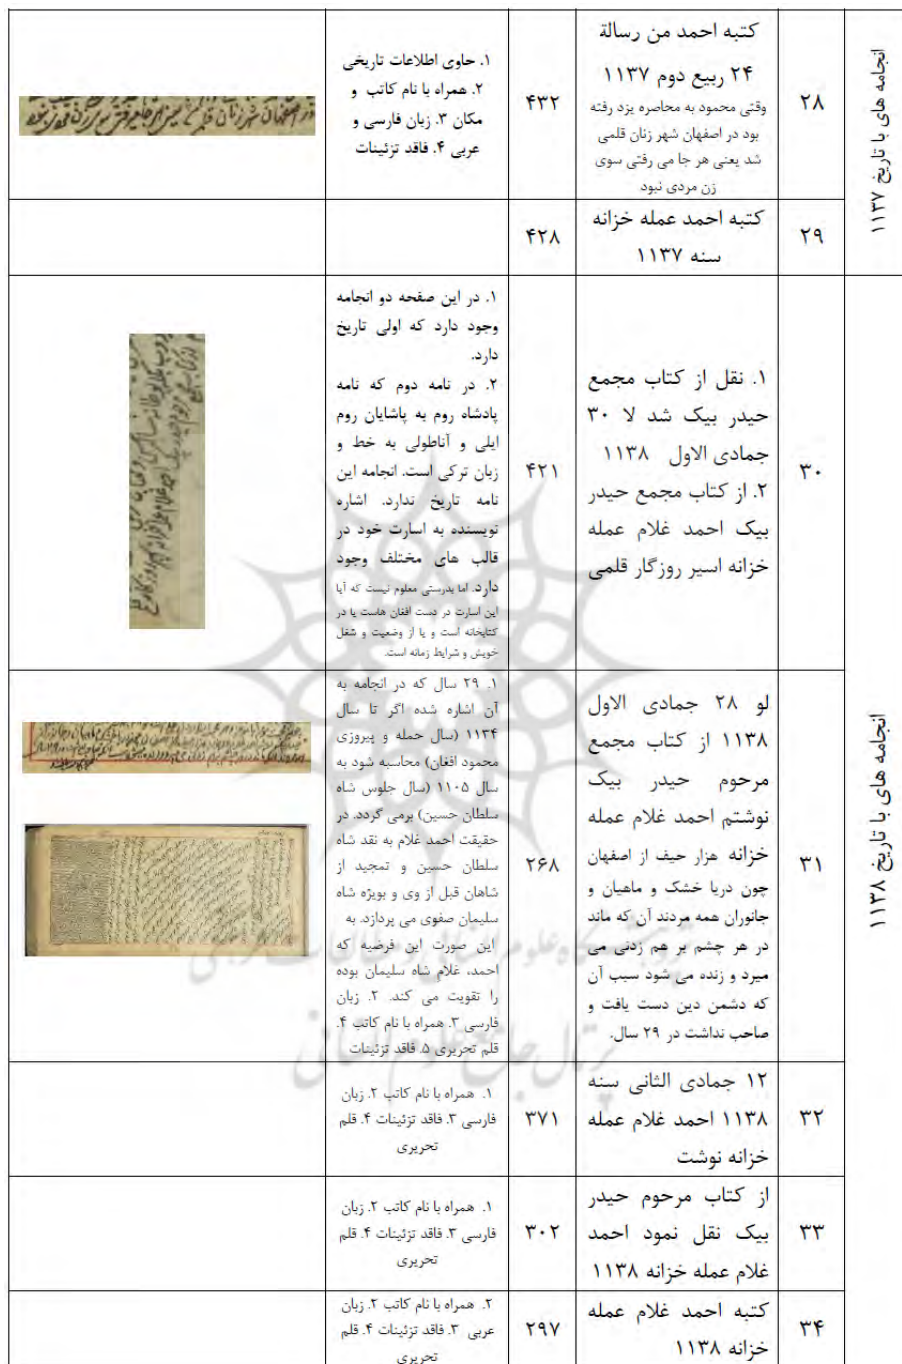 انجامه های با تاریخ ۱۱۳۷
۲۸
کتبه احمد من رسالة
۲۴ ربیع دوم ۱۱۳۷
وقتی محمود به محاصره یزد رفته
بود در اصفهان شهر زنان قلمی
شد یعنی هر جا می رفتی سوی
زن مردی نبود
۴۳۲
۱. حاوی اطلاعات تاریخی
۲. همراه با نام کاتب و
مکان ۳. زبان فارسی و
عربی ۴. فاقد تزئینات
۲۹
کتبه احمد عمله خزانه
سنه ۱۱۳۷
۴۲۸
انجامه های با تاریخ ۱۱۳۸
۳۰
۱. نقل از کتاب مجمع
حیدر بیک شد لا ۳۰
جمادی الاول ۱۱۳۸
۲. از کتاب مجمع حیدر
بیک احمد غلام عمله
خزانه اسیر روزگار قلمی
۴۲۱
۱. در این صفحه دو انجامه
وجود دارد که اولی تاریخ
دارد.
۲. در نامه دوم که نامه
پادشاه روم به پاشایان روم
ایلی و آناطولی به خط و
زبان ترکی است. انجامه این
نامه تاریخ ندارد. اشاره
نویسنده به اسارت خود در
قالب های مختلف وجود
دارد. اما بدرستی معلوم نیست که آیا
این اسارت در دست افغان هاست یا در
کتابخانه است و یا از وضعیت و شغل
خویش و شرایط زمانه است.
۳۱
لو ۲۸ جمادی الاول
۱۱۳۸ از کتاب مجمع
مرحوم حیدر بیک
نوشتم احمد غلام عمله
خزانه هزار حیف از اصفهان
چون دریا خشک و ماهیان و
جانوران همه مردند آن که ماند
در هر چشم بر هم زدنی می
میرد و زنده می شود سبب آن
که دشمن دین دست یافت و
صاحب نداشت در ۲۹ سال.
۲۶۸
۱. ۲۹ سال که در انجامه به
آن اشاره شده اگر تا سال
۱۱۳۴ (سال حمله و پیروزی
محمود افغان) محاسبه شود به
سال ۱۱۰۵ (سال جلوس شاه
سلطان حسین) برمی گردد. در
حقیقت احمد غلام به نقد شاه
سلطان حسین و تمجید از
شاهان قبل از وی و بویژه شاه
سلیمان صفوی می پردازد. به
این صورت این فرضیه که
احمد، غلام شاه سلیمان بوده
را تقویت می کند. ۲. زبان
فارسی ۳. همراه با نام کاتب ۴.
قلم تحریری ۵. فاقد تزئینات
۳۲
۱۲ جمادی الثانی سنه
۱۱۳۸ احمد غلام عمله
خزانه نوشت
۳۷۱
۱. همراه با نام کاتب ۲. زبان
فارسی ۳. فاقد تزئینات ۴. قلم
تحریری
۳۳
از کتاب مرحوم حیدر
بیک نقل نمود احمد
غلام عمله خزانه ۱۱۳۸
۳۰۲
۱. همراه با نام کاتب ۲. زبان
فارسی ۳. فاقد تزئینات ۴. قلم
تحریری
۳۴
کتبه احمد غلام عمله
خزانه ۱۱۳۸
۲۹۷
۲. همراه با نام کاتب ۲. زبان
عربی ۳. فاقد تزئینات ۴. قلم
تحریری
پژوهشگاه علوم انسانی و مطالعات فرهنگی
پرتال جامع علوم انسانی